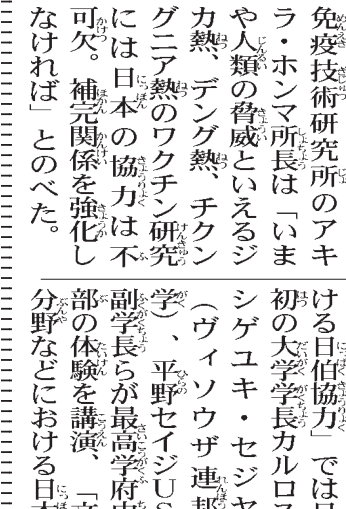 免疫技術研究所のアキ
ラ・ホンマ所長は「いま
や人類の脅威といえるジ
カ熱、デング熱、チクン
グニア熱のワクチン研究
には日本の協力は不
可欠。補完関係を強化し
なければ」とのべた。
ける日伯協力」では
初の大学学長カルロス
シゲユキ・セジヤ
（ヴィソウザ連邦
学）、平野セイジUS
副学長らが最高学府
部の体験を講演、「
分野などにおける日本